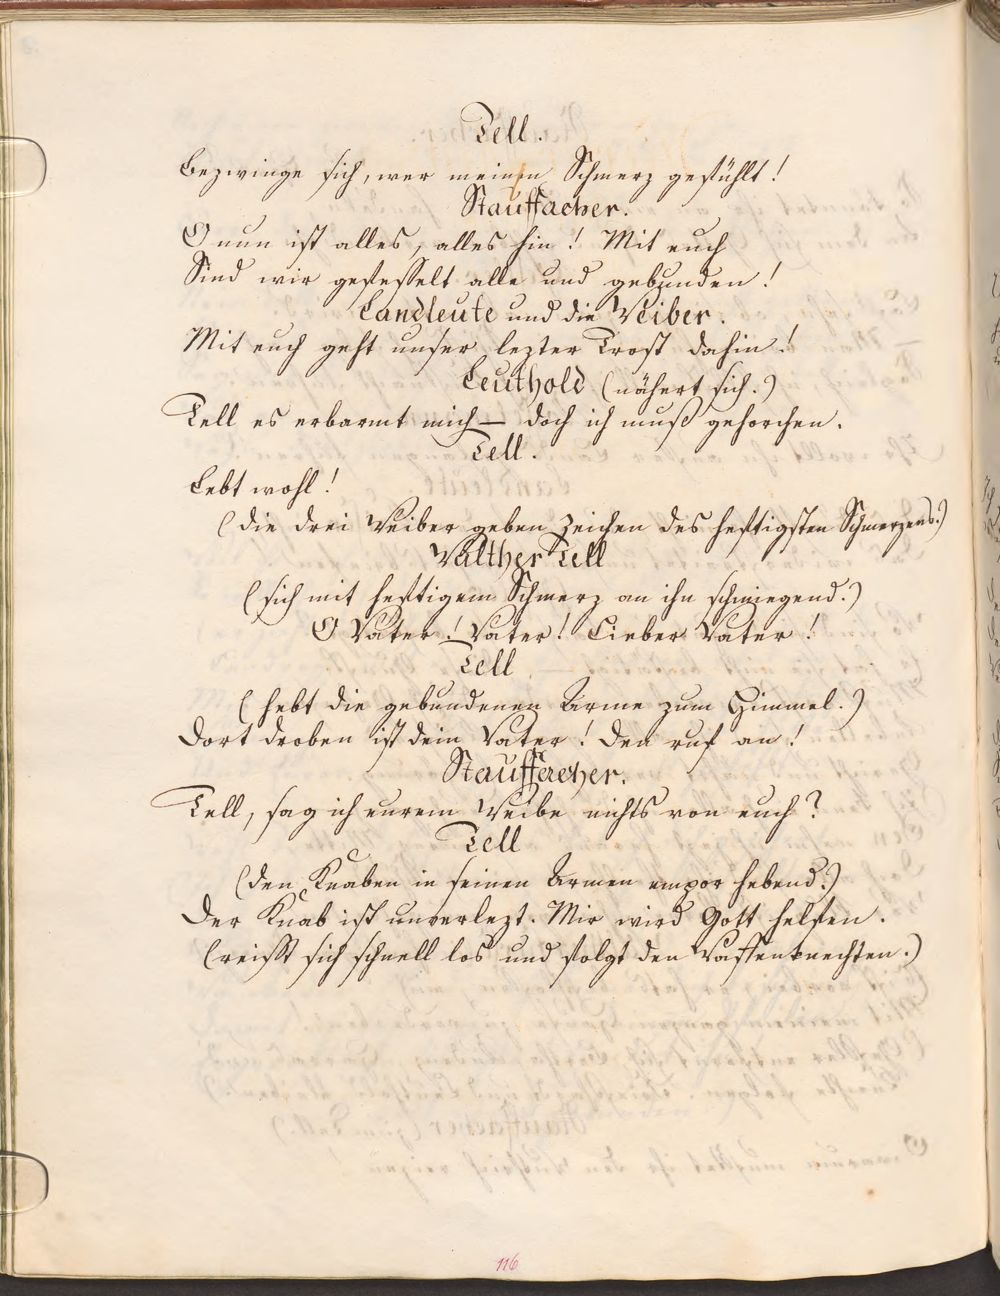 Tell.
Bezwinge sich, wer meinen Schmerz gefühlt!
Stauffacher.
O nun ist alles, alles hin! Mit euch
Sind wir gefesselt alle und gebunden!
Landleute und die Weiber.
Mit euch geht unser lezter Trost dahin!
Leuthold (nähert sich.)
Tell es erbarmt mich — doch ich muß gehorchen.
Tell.
Lebt wohl!
(die drei Weiber geben Zeichen des heftigsten Schmerzens.)
Walther Tell
(sich mit heftigem Schmerz an ihn schmiegend.)
O Vater! Vater! Lieber Vater!
Tell
(hebt die gebundenen Arme zum Himmel.)
Dort droben ist dein Vater! Den ruf an!
Stauffacher.
Tell, sag ich eurem Weibe nichts von euch?
Tell
(den Knaben in seinen Armen empor hebend.)
Der Knab ist unverlezt. Mir wird Gott helfen.
(reißt sich schnell los und folgt den Waffenknechten.)
116